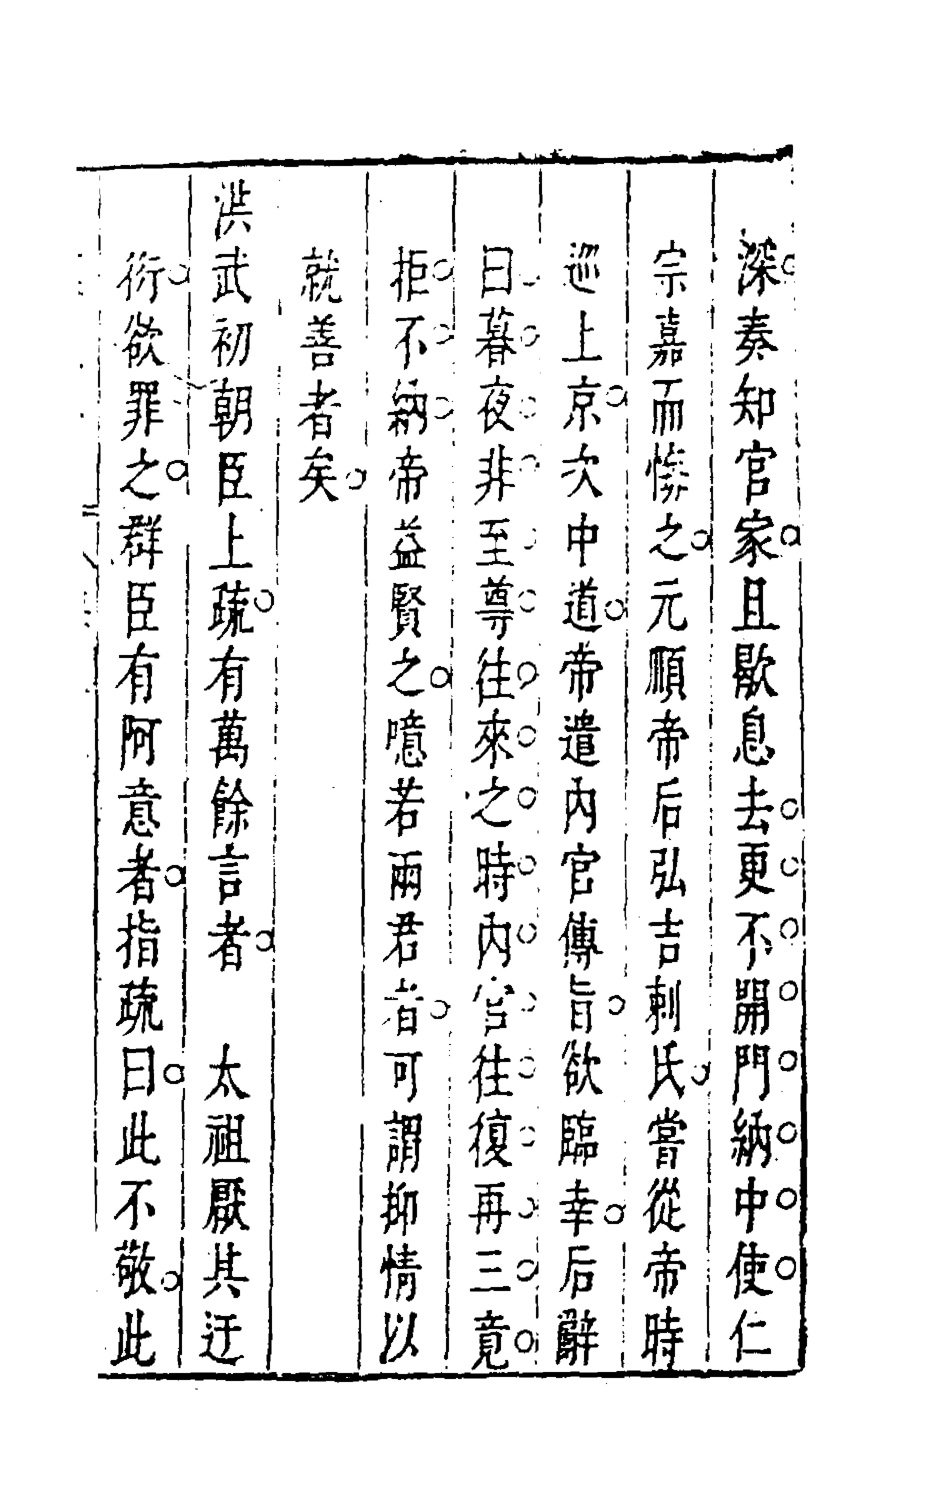 深奏知官家且歇息去更不開門納中使仁
宗嘉而憐之元順帝后弘吉剌氏嘗從帝時
巡上京次中道帝遣內官傳旨欲臨幸后辭
曰暮夜非至尊往來之時內官往復再三竟
拒不納帝益賢之噫若兩君者可謂抑情以
就善者矣
洪武初朝臣上疏有萬餘言者　太祖厭其迂
衍欲罪之群臣有阿意者指疏曰此不敬此